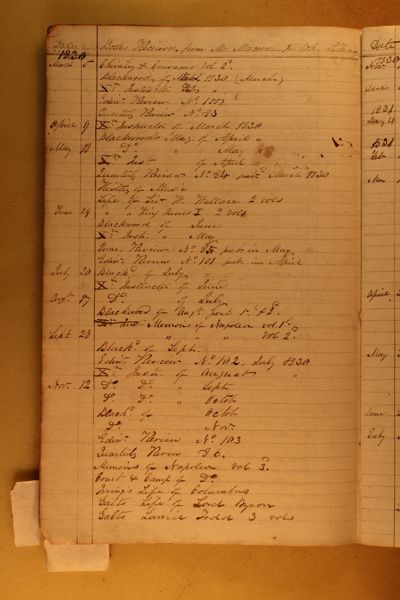 Date Books Received from Mr. Library
1830
March 5 Chivalry & Crusades Vol. 2d.
Blackwood of 1830 (March)
Xn. Instructor "
Edinr. Review No. 100
Quarterly Review No. 83
April 9 Xn. Instructor of March 1830
Blackwoods Mag. of April "
May 18 Do. " of May "
Xn. Inst. of April "
Quarterly Review No. 84 pubd. March 1830
History of Music
Life of Sir W. Wallace 2 vols
June 29 " " King James I 2 vols
Blackwood of June
Xn. Inst. " May
Quar. Review No. 85 pub. in May
Edinr. Review No. 101 pub. in April
July 20 Blackd. of July "
Xn. Instructor of June
Augt. 17 Do. of July
Blackwood of Augt. part 1st. & 2d.
Memoirs of Napoleon vol. 1st.
Sept. 23 " " " vol. 2d.
Blackd. of Sept.
Edinr. Review No. 102. July 1830
Xn. Instr. of August "
Novr. 12 Do. Do. " Sept.
Do. Do. " Octob
Blackd. of Octob
Do. Novr.
Edinr. Review No. 103
Quarterly Review 86.
Memoirs of Napoleon vol. 3.
Court & Camp of Do.
Irving's Life of Columbus
Galts Life of Lord Byron
Galts Lawrie Todd 3 vols
Date
1830
Novr.
1831
1831
Feb.
Mar
April 2
May 3
June 2
July